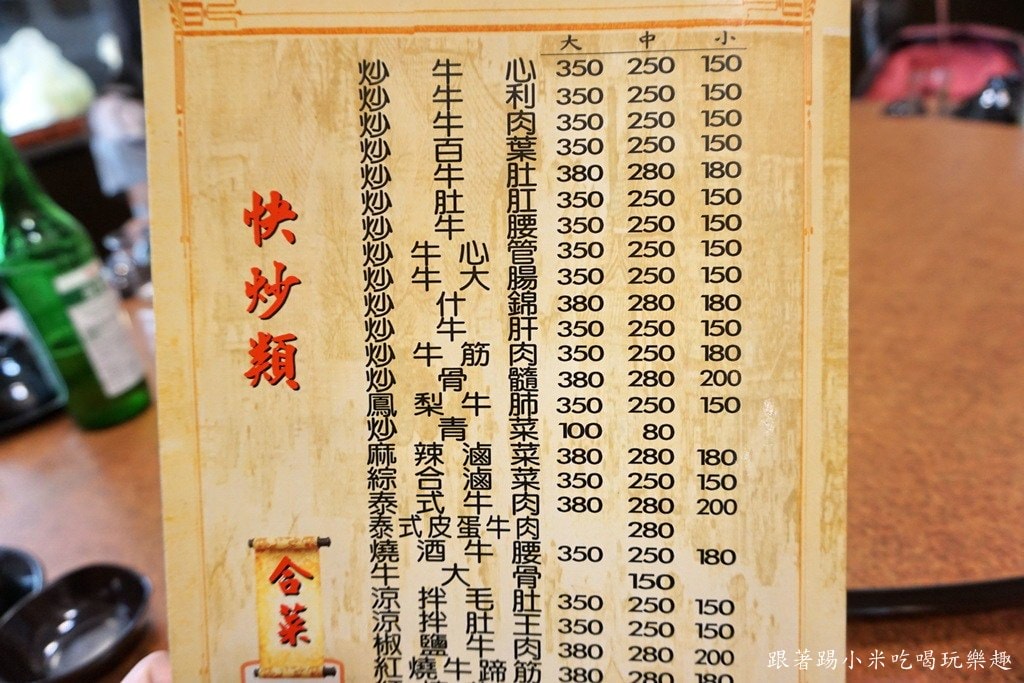 大 中 小
炒牛心 350 250 150
炒牛利 350 250 150
炒牛肉 350 250 150
炒百葉 350 250 150
炒牛肚 380 280 180
炒肚肛 350 250 150
炒牛腰 350 250 150
炒牛心管 350 250 150
炒牛大腸 350 250 150
炒什錦 380 280 180
炒牛肝 350 250 150
炒牛筋肉 350 250 180
炒骨髓 380 280 200
鳳梨牛肺 350 250 150
炒青菜 100 80
麻辣滷菜 380 280 180
綜合滷菜 350 250 150
泰式牛肉 380 280 200
泰式皮蛋牛肉 280
燒酒牛腰 350 250 180
牛大骨 150
涼拌毛肚 350 250 150
涼拌肚王 350 250 150
椒鹽牛肉 380 280 200
紅燒牛蹄筋 350 280 180
快炒類
合菜
跟著踢小米吃喝玩樂趣